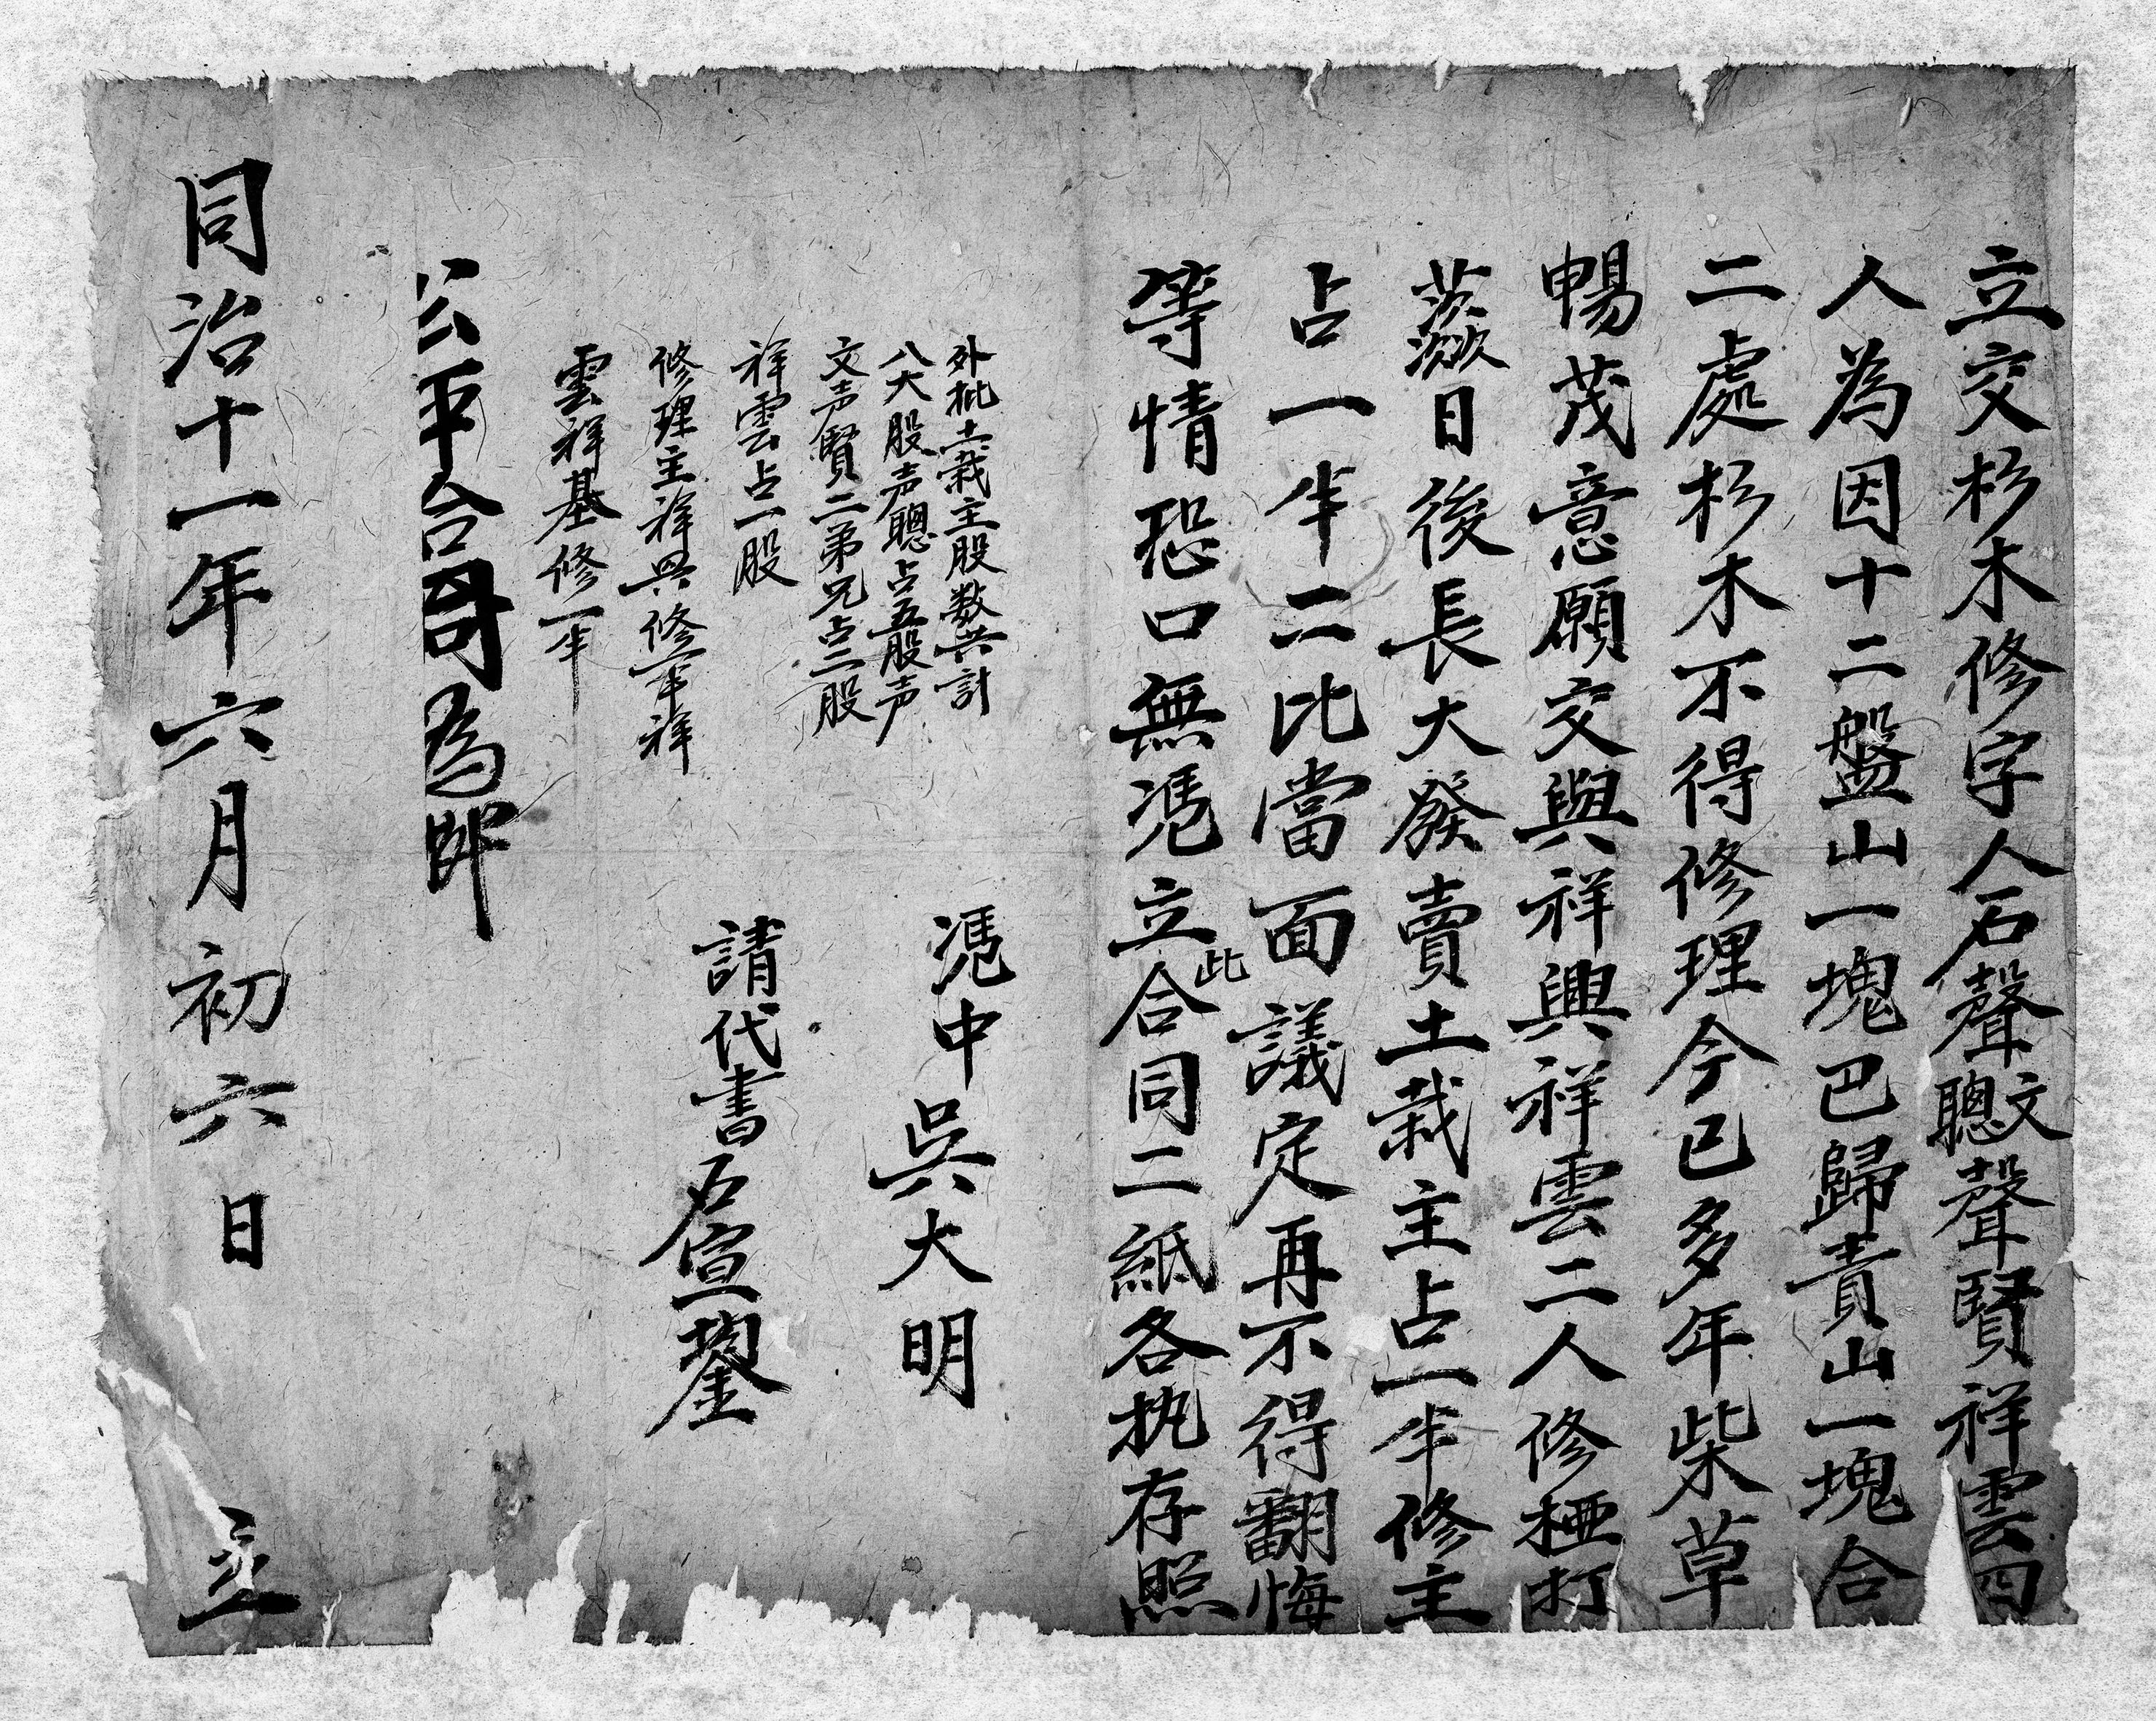 立交杉木修字人石聲聰文聲賢祥雲四
人為因十二盤山一塊巴歸責山一塊合
二處杉木不得修理今已多年柴草
暢茂意願交與祥興祥雲二人修极打
日後長大發賣土栽主占一半修主
占一半二比當面議定再不得翻悔
等情恐口無凴立此合同二紙各执存照
外批土栽主股数共計
八大股声聰占五股声
文声賢二弟兄占二股
祥雲占一股
修理主祥興修一半祥
雲祥基修一半
凴中吳大明
請代書石宣
公平合同為
同治十一年六月初六日 立